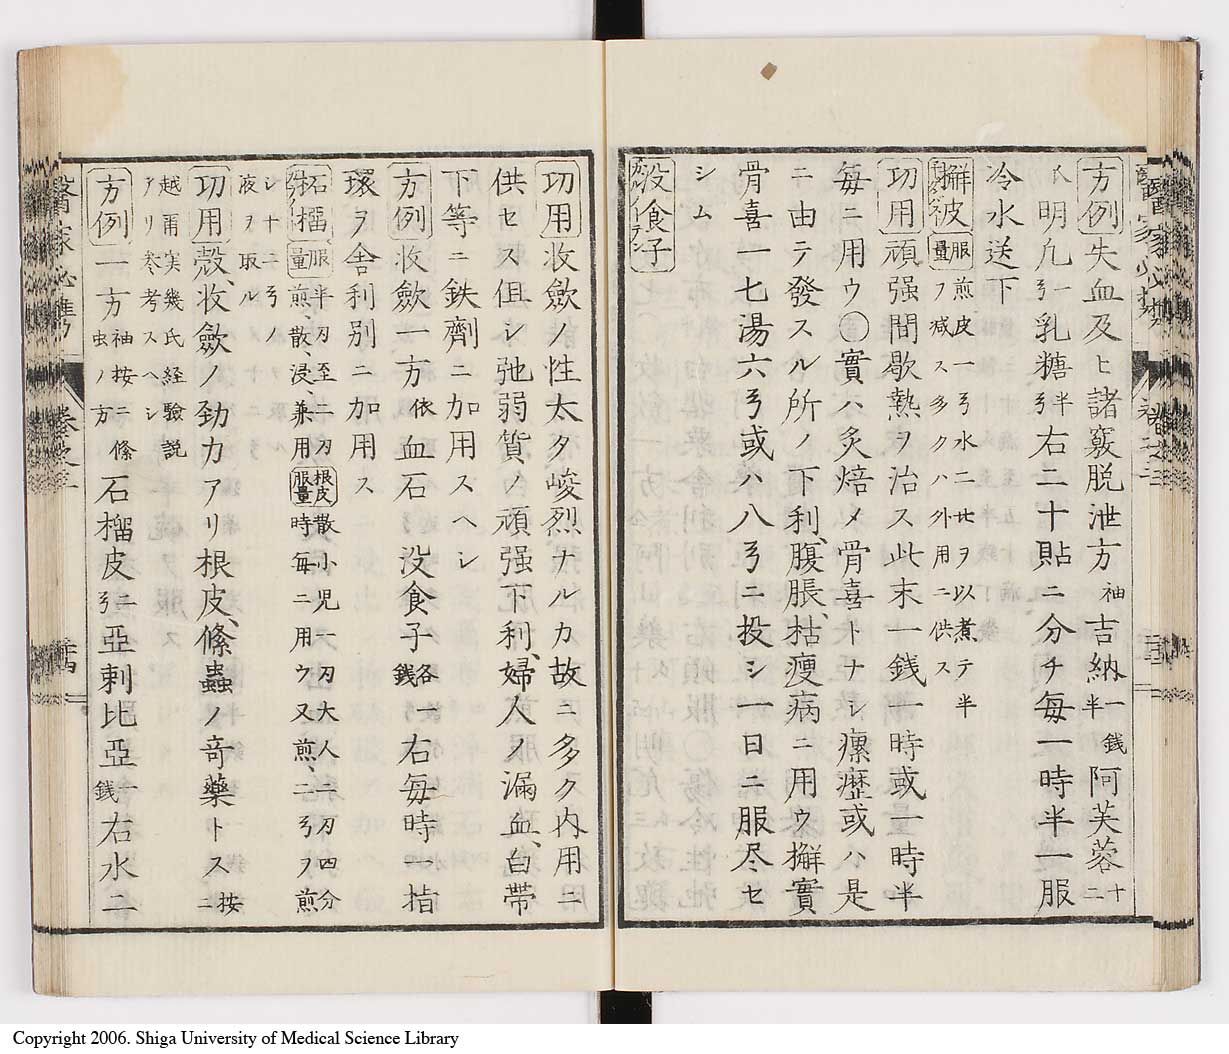 方例失血及ヒ諸竅脱泄方袖吉納一銭半阿芙蓉十二
氏明九弓一乳糖半弓右二十貼ニ分チ毎一時半一服
冷水送下
檞皮服量煎皮一弓水二比ヲ以煮テ半ヲ減ス多クハ外用ニ供ス
功用頑强間歇熱ヲ治ス此末一銭一時或一時半
毎ニ用ウ〇實ハ炙焙メ骨喜トナシ瘰癧或ハ是
ニ由テ發スル所ノ下利、腹脹、枯痩病ニ用ウ檞實
骨喜一七湯六弓或ハ八弓ニ投シ一日ニ服尽セ
シム
没食子
功用收歛ノ性太タ峻烈ナルカ故ニ多ク内用ニ
供セス但シ弛弱質ノ頑强下利、婦人ノ漏血、白帯
下等ニ鉄劑ニ加用スヘシ
方例收歛一方依血石没食子各一銭右毎時一指
環ヲ舎利別ニ加用ス
石榴服量半刃至二刃煎、散、浸兼用根皮服量散小児一刃大人二刃四分時毎ニ用ウ又煎、二弓ヲ煎
シ十二弓ノ
液ヲ取ル
功用殻、收歛ノ効カアリ根皮、絛蟲ノ奇藥トス按ニ
越爾実幾氏経驗説
アリ考スヘシ
方例一方袖按ニ絛虫ノ方石榴皮二弓亞剌比亞一銭右水二